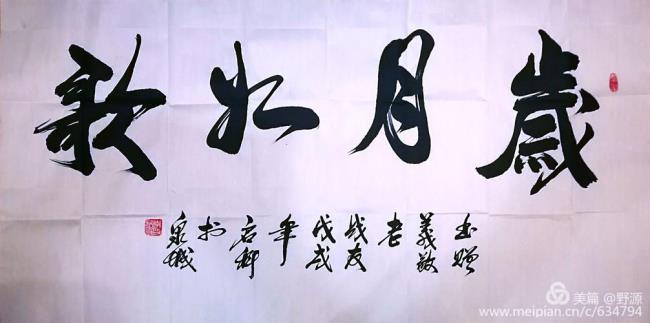 歲月如歌
书赠
義敬
老
战友
戊戌
年
於
泉城
美篇 @野源
www.meipian.cn/c/634794